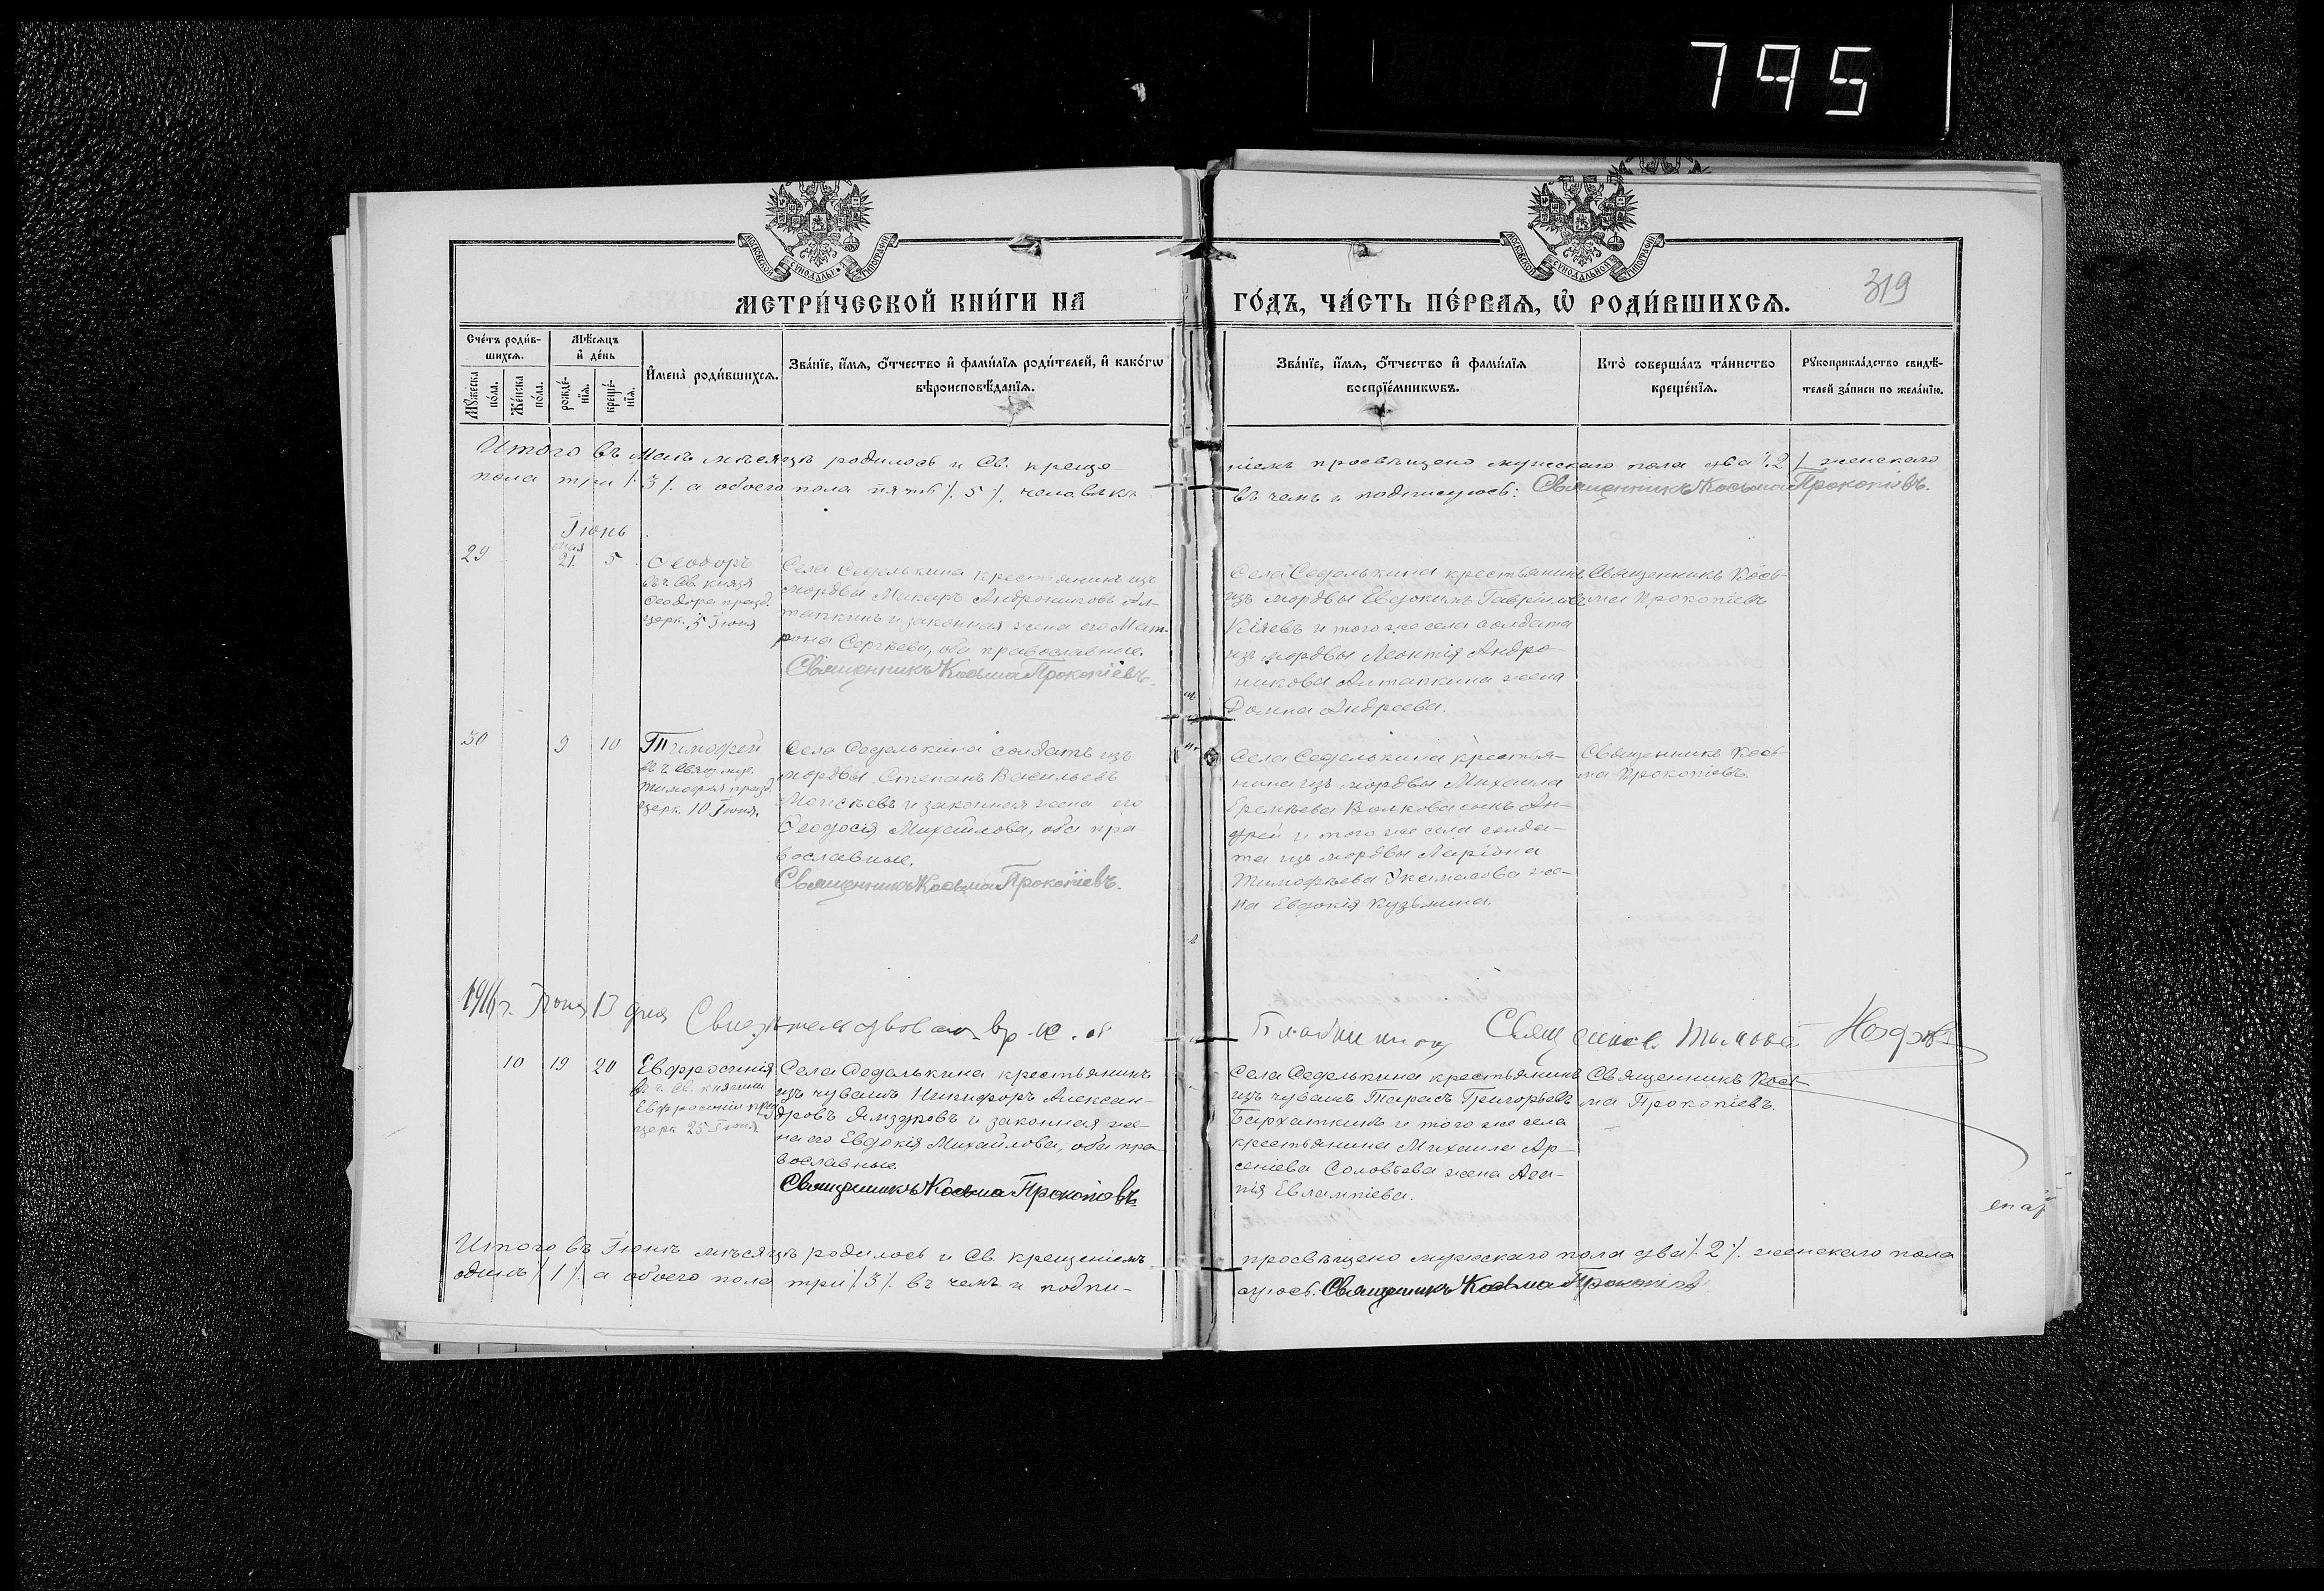 795
319
МЕТРИ́ЧЕСКОЙ КНИ́ГИ НА ГО́ДЪ, ЧА́СТЬ ПЕ́РВАЯ, Ѽ РОДИ́ВШИХСЯ.
Сче́тъ роди́в-
шихся.
Мꙋ́жеска по́ла.
Же́нска по́ла.
Мѣ́сяцъ
и҆ де́нь
рожде́-
нїѧ.
креще́-
нїѧ.
И҆мена̀ роди́вшихсѧ.
Зва́нїе, и҆́мѧ, ѻ҆́тчество и҆ фами́лїѧ роди́телей, и҆ како́гѡ
вѣроисповѣ́данїѧ.
Зва́нїе, и҆́мѧ, ѻ҆́тчество и҆ фами́лїѧ
воспрїе́мникѡвъ.
Кто̀ соверша́лъ та́инство
креще́нїѧ.
Рꙋкоприкла́дство свидѣ́-
телей за́писи по жела́нїю.
Итого въ Маѣ мѣсяцѣ родилось и Св. креще
ніемъ просвѣщено мужескаго пола два ٪ 2 ٪ женскаго
пола три ٪ 3 ٪ а обоего пола пять ٪ 5 ٪ человѣкъ
въ чемъ и подписуюсь: Священникъ Косьма Прокопіевъ.
Іюнь
29
мая
21. 5
Ѳеодоръ
въ ч. св. князя
Ѳеодора празд.
церк. 5 Іюня
Села Седелькина крестьянинъ изъ
мордвы Макаръ Андрониковъ Ал-
тапкинъ и законная жена его Мат-
рона Сергѣева, оба православные.
Священникъ Косьма Прокопіевъ.
Села Седелькина крестьянинъ
изъ мордвы Евдокимъ Гавріиловъ
Кіяевъ и того же села солдата
изъ мордвы Леонтія Андро
никова Алтапкина жена
Домна Андреева.
Священникъ Кось-
ма Прокопіевъ
30
9 10
Тимофей
въ ч. свящ. муч.
Тимофея празд.
церк. 10 Іюня.
Села Седелькина солдатъ изъ
мордвы Степанъ Васильевъ
Моисѣевъ и законная жена его
Ѳеодосія Михайлова, оба пра
вославные.
Священникъ Косьма Прокопіевъ.
Села Седелькина крестья-
нина изъ мордвы Михаила
Еремѣева Волкова сынъ Ан-
дрей и того же села солда-
та изъ мордвы Ларіона
Тимофѣева Укамасова же-
на Евдокія Кузьмина.
Священникъ Кось-
ма Прокопіевъ.
1916 г. Іюня 13 дня
10 19 20
Евфросинія
въ ч. св. княгини
Евфросиніи празд.
церк. 25 Іюня.
Села Седелькина крестьянинъ
изъ чувашъ Никифоръ Алексан-
дровъ и законная же-
на его Евдокія Михайлова, оба пра-
вославные.
Священникъ Косьма Прокопіевъ
Села Седелькина крестьянинъ
изъ чувашъ Тарасъ Григорьевъ
Бархаткинъ и того же села
крестьянина Михаила Ар-
сеніева Соловьева жена Ага-
пія Евлампіева.
Священникъ Кось-
ма Прокопіевъ.
Итого въ Іюнѣ мѣсяцѣ родилось и Св. крещеніемъ
просвѣщено мужскаго пола два ٪ 2 ٪. женскаго пола
одинъ ٪ 1 ٪ а обоего пола три ٪ 3 ٪. въ чемъ и подпи-
суюсь: Священникъ Косьма Прокопіевъ